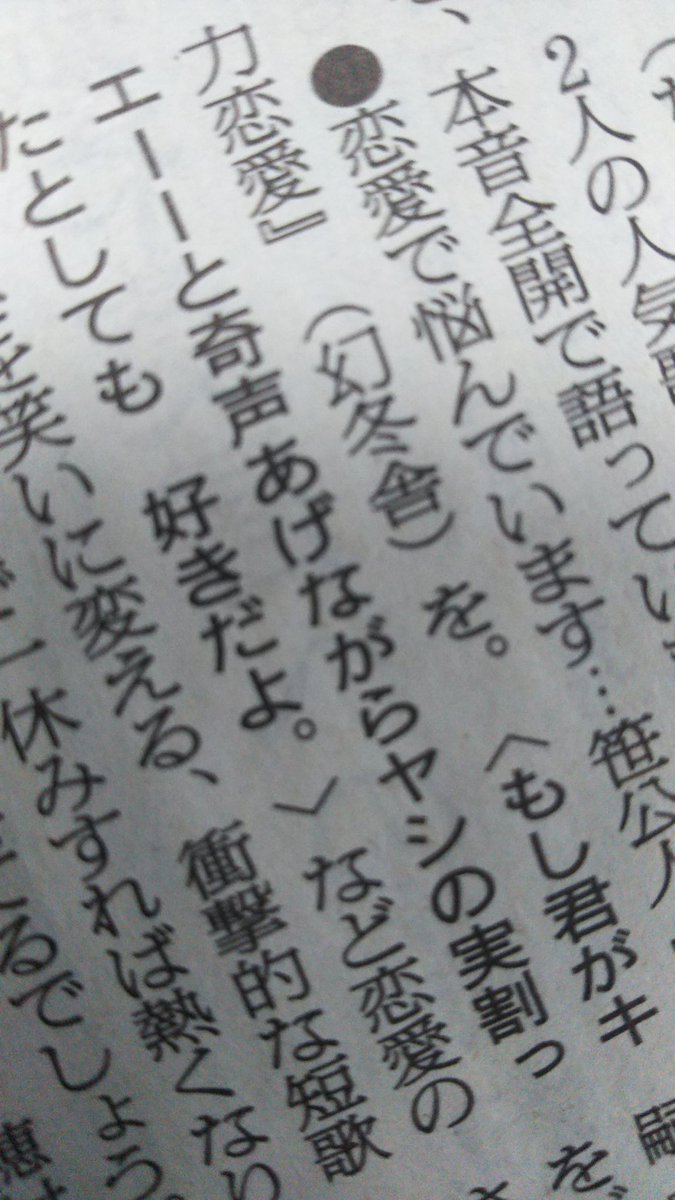 2人の人気
本音全開で語ってい
●恋愛で悩んでいます…笹公人
力恋愛』(幻冬舎)を。〈もし君がキ
エーーと奇声あげながらヤシの実割っ
たとしても 好きだよ。〉など恋愛の
を笑いに変える、衝撃的な短歌
一休みすれば熱くない
るでしょう。